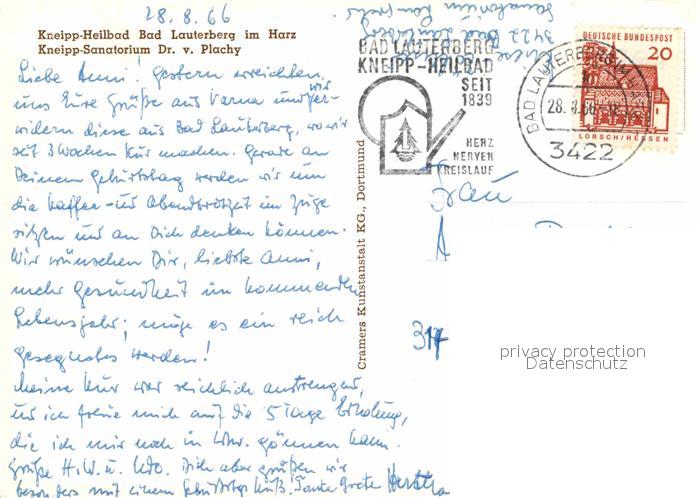 28.8.66
Kneipp-Heilbad Bad Lauterberg im Harz
Kneipp-Sanatorium Dr. v. Plachy
Liebe Anni! Gestern erreichten
uns Eure Grüße aus Varna und wir er-
widern diese aus Bad Lauterberg, wo wir
seit 3 Wochen Kur machen. Gerade an
Deinem Geburtstag werden wir um
die Kaffee- und Abendbrotzeit im Zuge
sitzen und an Dich denken können.
Wir wünschen Dir, liebste Anni,
mehr Gesundheit im kommenden
Lebensjahr; möge es ein reich
gesegnetes werden!
Meine Kur war reichlich anstrengend,
und ich freue mich auf die 5 Tage Erholung,
die ich mir noch in gönnen kann.
Grüße H.W. u. Udo. Dich aber grüßen wir
besonders mit einem Geburtstagskuß. Tante Grete
3422 Bad Lauterberg
Sanatorium
BAD LAUTERBERG
KNEIPP-HEILBAD
SEIT
1839
HERZ
NERVEN
KREISLAUF
BAD LAUTERBERG
28.8.66
3422
DEUTSCHE BUNDESPOST
20
LORSCH/HESSEN
Cramers Kunstanstalt KG., Dortmund
Frau
A
privacy protection
Datenschutz